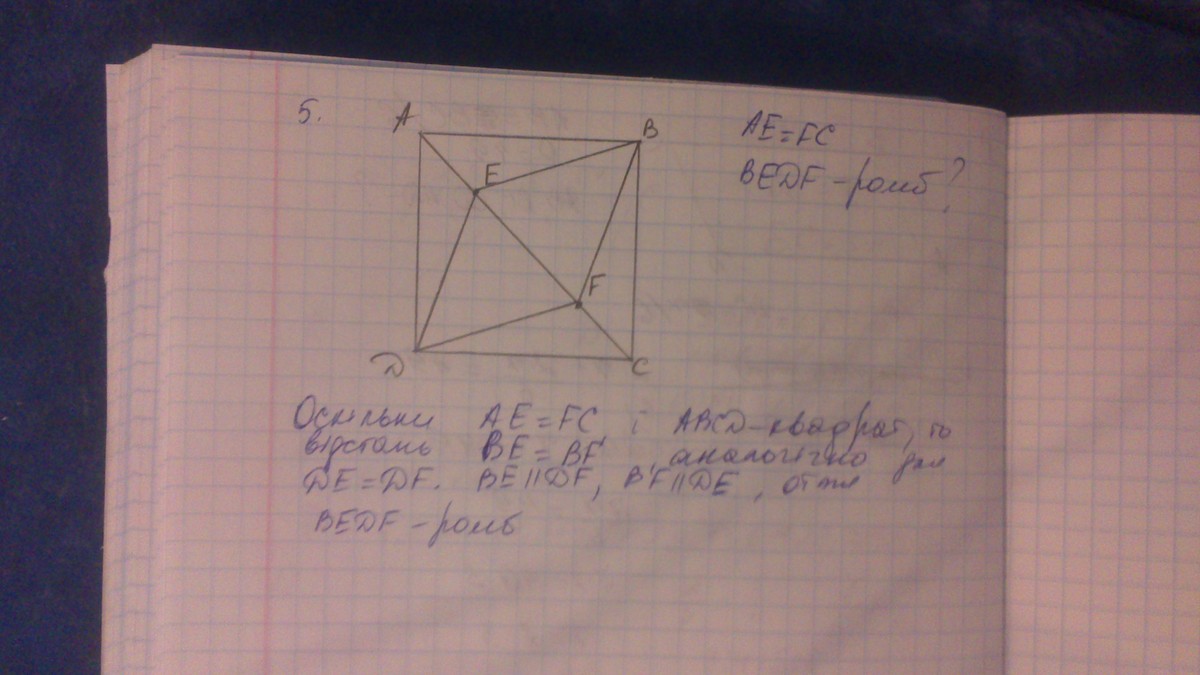 5.
A
B
AE=FC
E
BEDF - ромб?
F
D
C
Оскільки AE=FC, і ABCD-квадрат, то
відстань BE=BF, аналогічно для
DE=DF. BE||DF, BF||DE, отже
BEDF - ромб